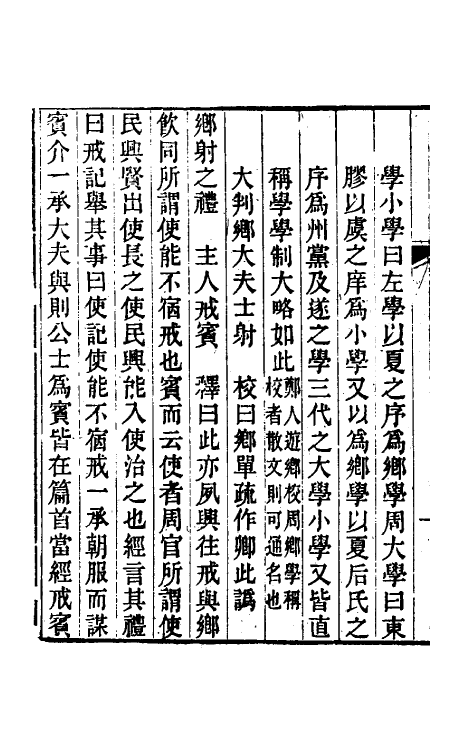 學小學曰左學以夏之序爲鄉學周大學曰東
膠以虞之庠爲小學又以爲鄉學以夏后氏之
序爲州黨及遂之學三代之大學小學又皆直
稱學學制大略如此鄭人遊鄉校周鄉學稱
校者散文則可通名也
大判鄉大夫士射　校曰鄉單疏作卿此譌
鄉射之禮　主人戒賓　釋曰此亦夙興往戒與鄉
飲同所謂使能不宿戒也賓而云使者周官所謂使
民興賢出使長之使民興能入使治之也經言其禮
曰戒記舉其事曰使記使能不宿戒一承朝服而謀
賓介一承大夫與則公士爲賓皆在篇首當經戒賓